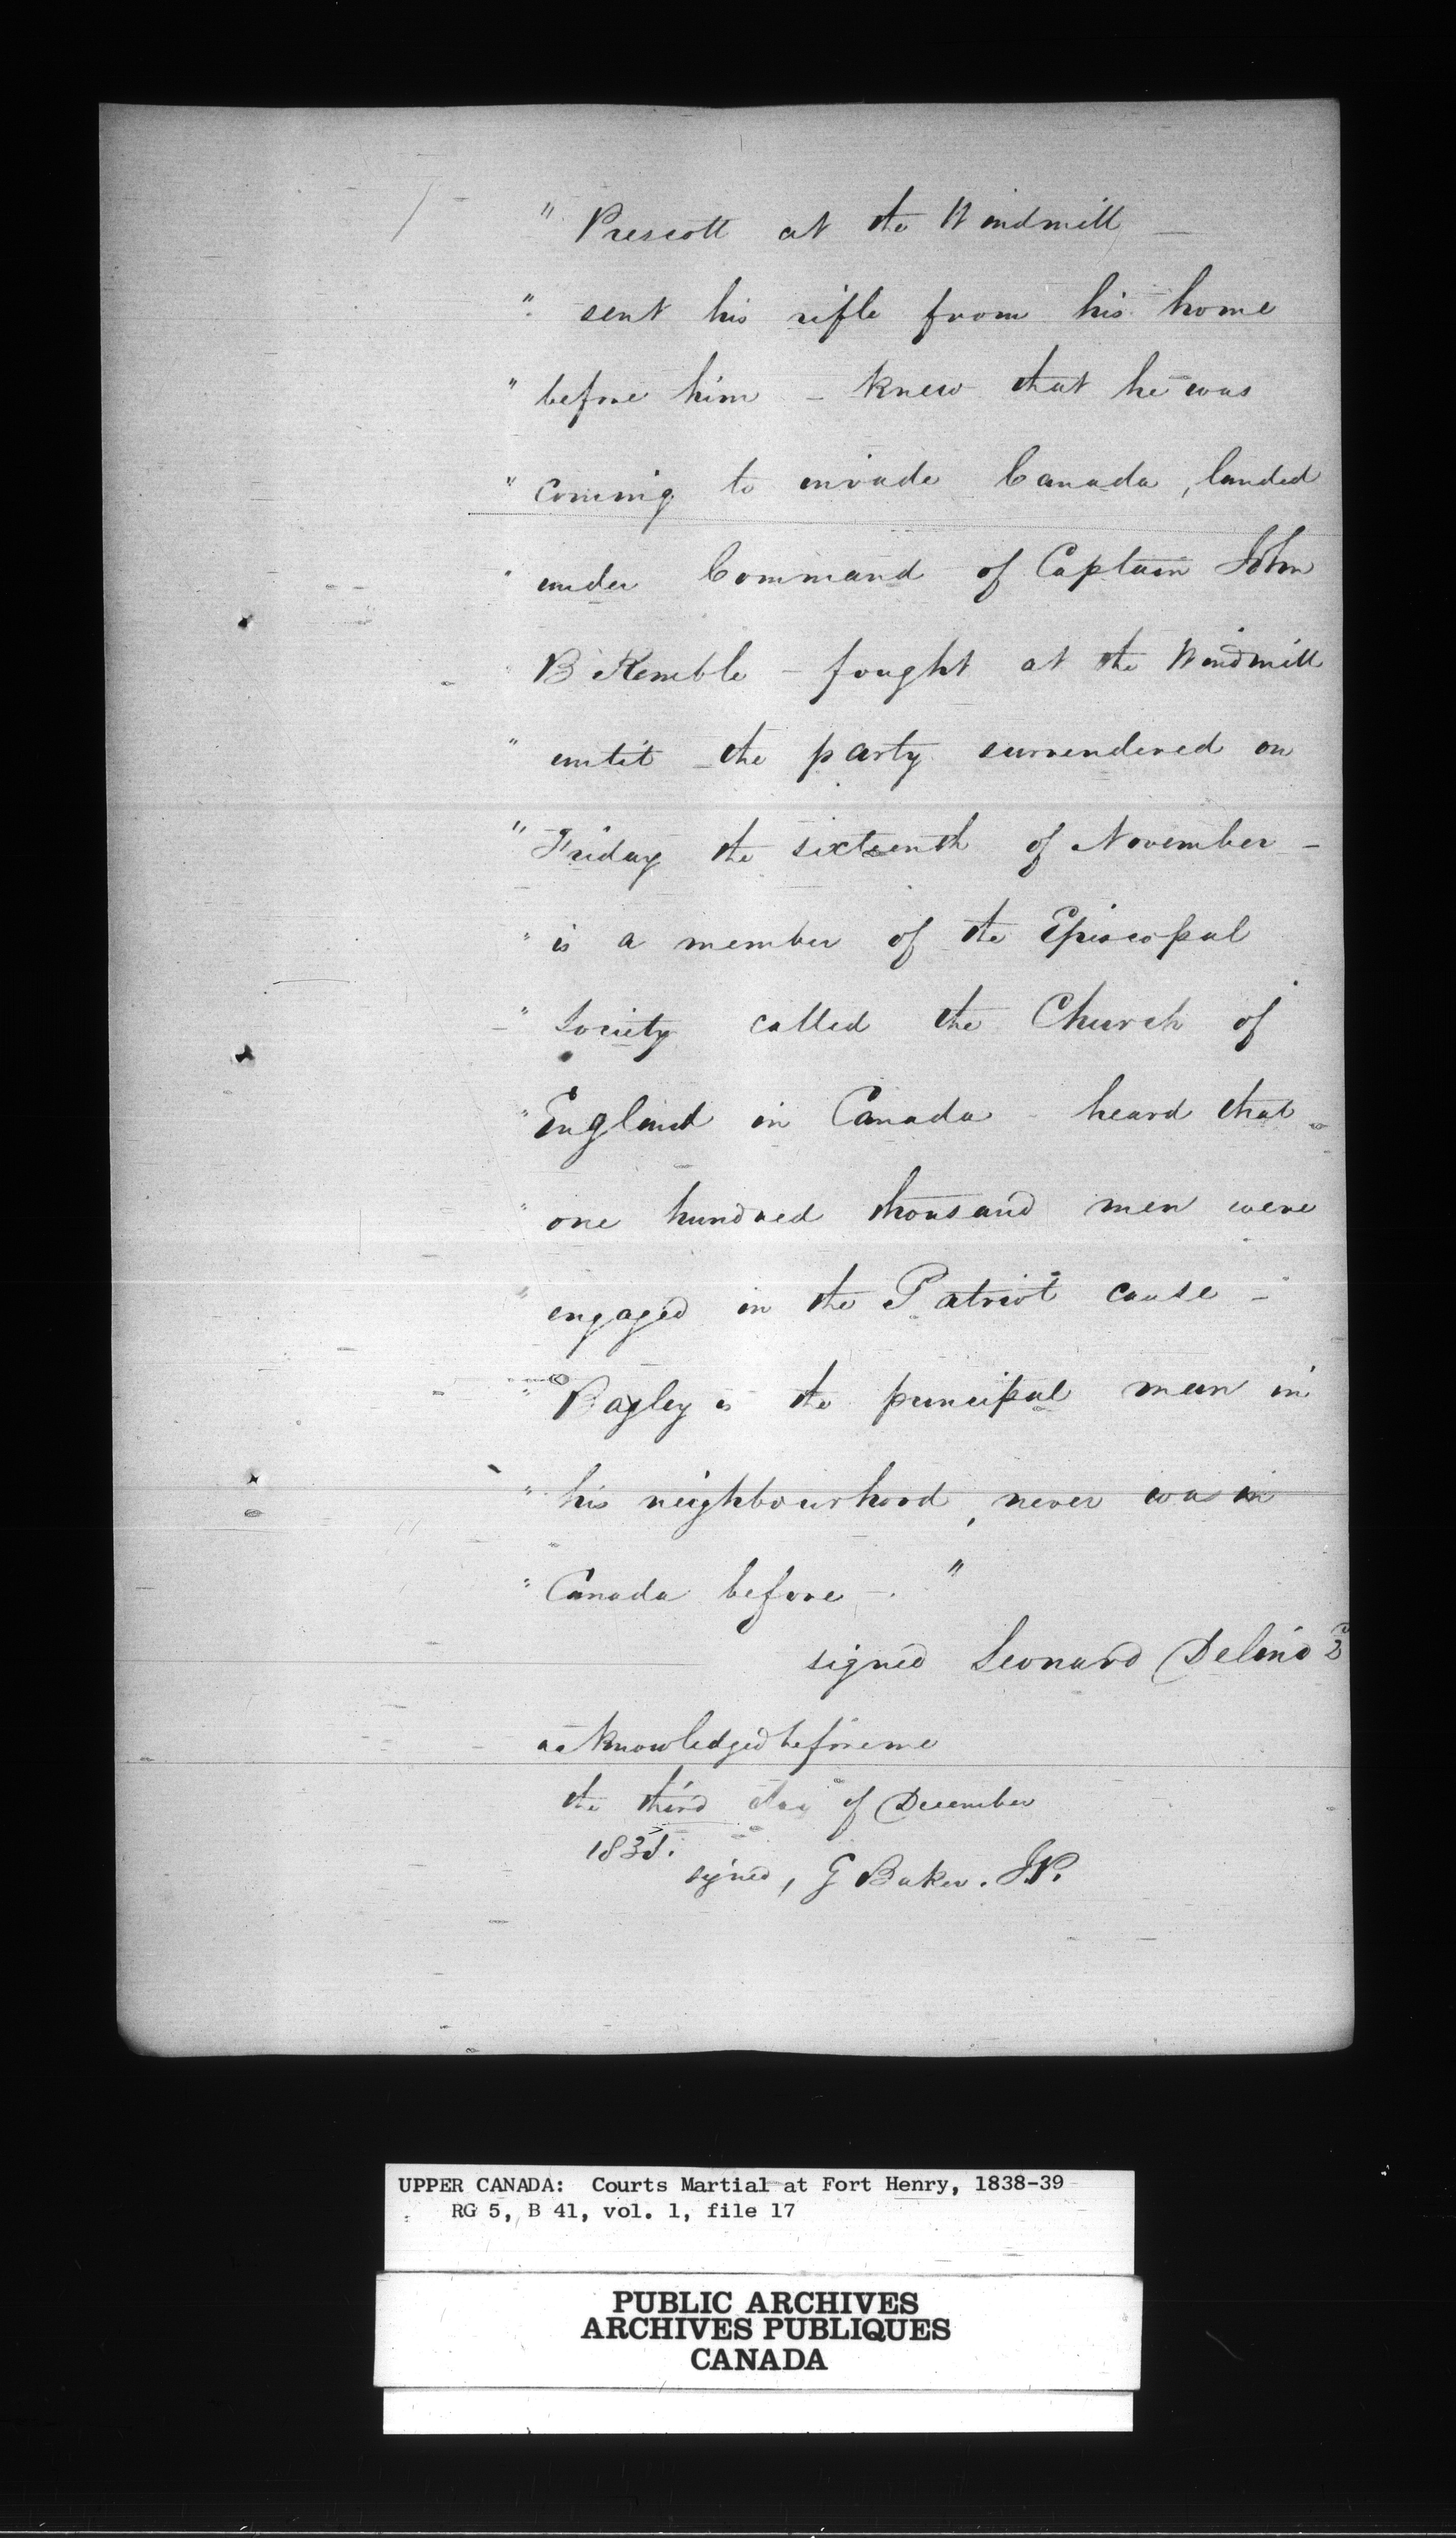 " Prescott at the Windmill —
" sent his rifle from his home
" before him – knew that he was
" coming to invade Canada, landed
" under Command of Captain John
" B Kemble – fought at the Windmill
" until the party surrendered on
" Friday the sixteenth of November –
" is a member of the Episcopal
" Society called the Church of
" England in Canada – heard that
" one hundred thousand men were
" engaged in the Patriot cause –
" Bagley is the principal man in
" his neighbourhood, never was in
" Canada before –. "
signed Leonard Delino
acknowledged before me
the third day of December
1838.
signed, G Baker. J.P.
UPPER CANADA: Courts Martial at Fort Henry, 1838-39
RG 5, B 41, vol. 1, file 17
PUBLIC ARCHIVES
ARCHIVES PUBLIQUES
CANADA